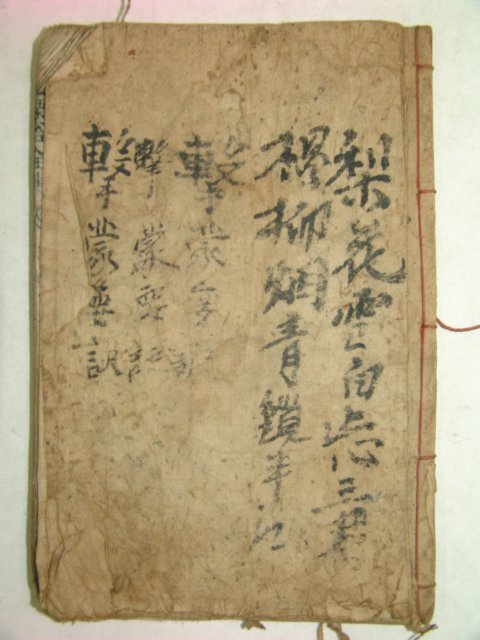 梨花雪白恋三春
楊柳烟青鎖半江
擊蒙要訣
擊蒙要訣
擊蒙要訣